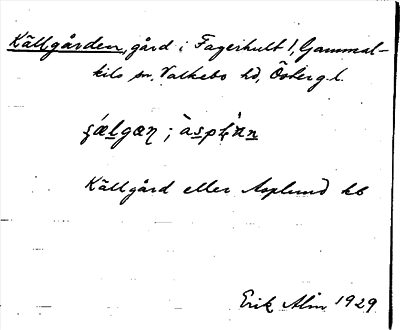 Källgården, gård i Fagerhult 1, Gammal-
kils sn. Valkebo hd, Östergl.
Källgård eller Asplund kb
Erik Alm 1929